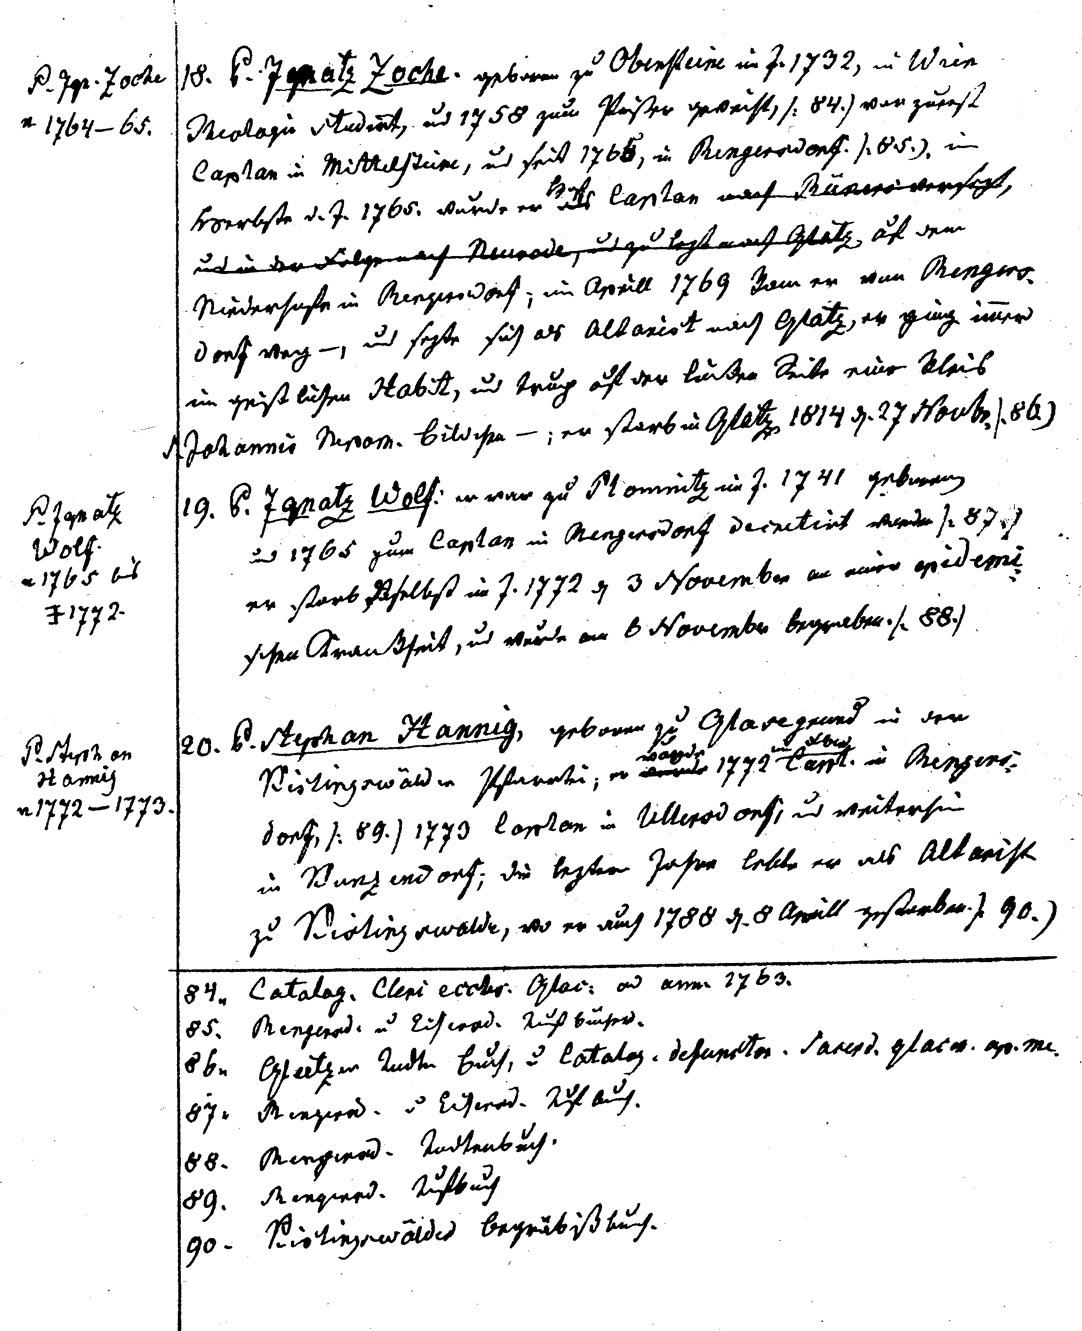 P. Ign. Zoche
v 1764–65.
18. P. Ignatz Zoche. geboren zu Obersteine im J. 1732, in Wien
Theologie studirt, und 1758 zum Priester geweiht, /: 84.) war zuerst
Caplan in Mittelsteine, und seit 1765, in Rengersdorf. /: 85.), im
Herbste d. J. 1765. wurde er als Caplan nach Rückers versezt,
und in der Folge nach Neurode, und zu lezt nach Glatz, auf dem
Niederhofe in Rengersdorf; im Aprill 1769 kam er von Rengers-
dorf weg –, und sezte sich als Altarist nach Glatz, er ging immer
im geistlichen Habit, und trug auf der linken Seite ein
S Johannis Nepom. Bildchen – ; er starb in Glatz 1814 d. 27 Novbr. /: 86.)
P. Ignatz
Wolf.
v 1765 bis
‡ 1772.
19. P. Ignatz Wolf: er war zu Plomnitz im J. 1741 geboren
und 1765 zum Caplan in Rengersdorf decretirt worden /: 87.)
er starb daselbst im J. 1772 d 3 November an einer epidemi-
schen Krankheit, und wurde am 6 November begraben. /: 88.)
P. Stephan
Hannig
v 1772–1773.
20. P. Stephan Hannig, geboren zu Glasegrund in der
Kislingswälder Pfarrei; er wurde 1772 Capl. in Rengers-
dorf, /: 89.) 1773 Caplan in Ullersdorf, und weiterhin
in Kunzendorf; die lezten Jahre lebte er als Altarist
zu Kislingswalde, wo er auch 1788 d. 8 Aprill gestorben. /: 90.)
84. Catalog. Cleri eccles. Glac: ad ann. 1763.
85. Rengersd. u Eisersd. Taufbücher.
86. Glatzer Todten Buch, u Catalog. defunctor. Sacerd. glacen. ap. me.
87. Rengersd. u Eisersd. Taufbuch.
88. Rengersd. Todtenbuch.
89. Rengersd. Taufbuch
90. Kislingswälder Begräbißbuch.